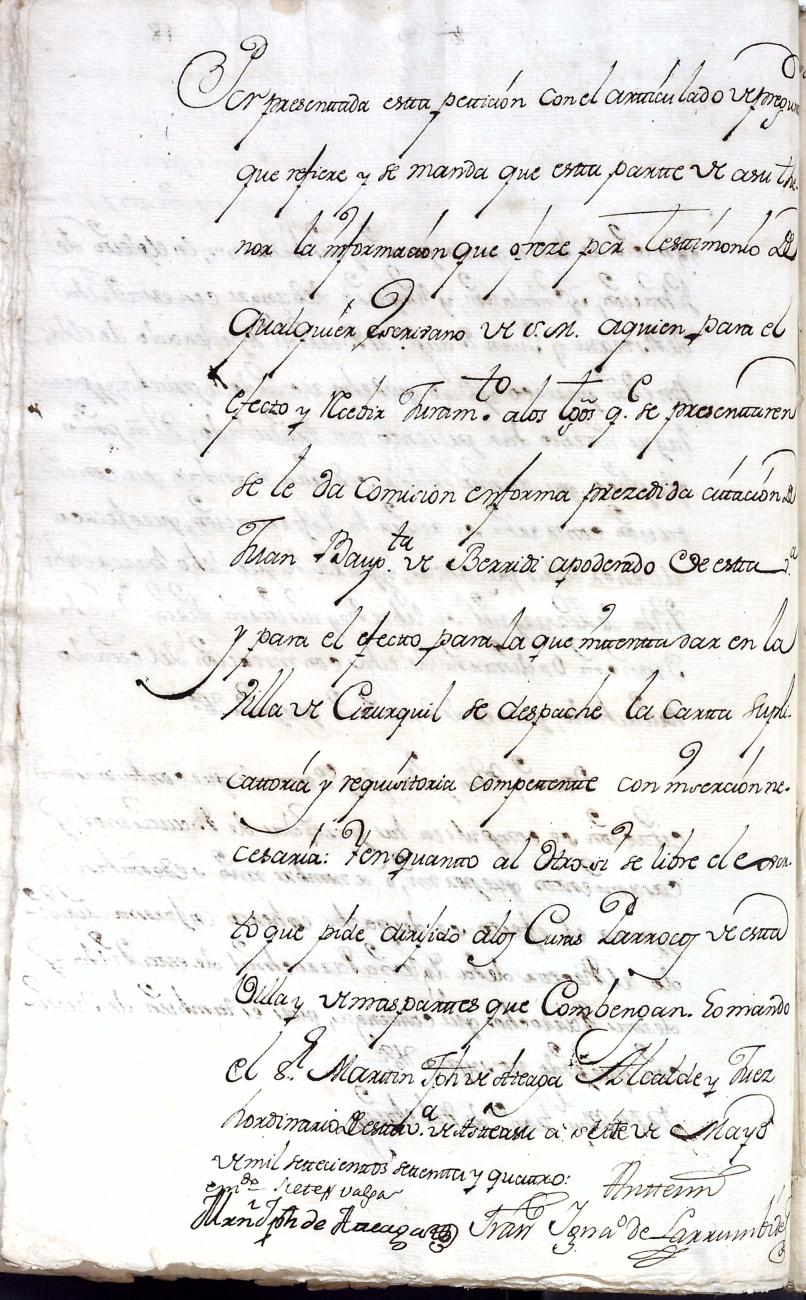 Por presentada estta petición con el arttículado de pregun
que refiere y se manda que estta partte de asu the-
nor la información que ofreze por Testtimonio de
qualquiér Escrivano de S.M. aquien para el
efecto y Recebir Juram.to alos tgõs q.e se presentaren
se le da Comision enforma prezedida cittación de
Juan Baup.ta de Berridi apoderado de estta v.a
y para el efectto para la que inttentta dar en la
Villa de Cizurquil se despache la cartta supli-
cattoriá y requisitoria compettentte con inserción ne-
cesaria: Yen quantto al Otro si se libre el
to que pide dirijido alos Curas Párrocos de estta
Villa y demas parttes que Combengan. Lo mando
el S.r Marttin Jph de Atteaga Alcalde y Juez
hordinario de estta v.a de a siete de Mayo
de mil settecienttos settentta y quattro:
em.do siete valga Anttemi
Mrñ Jph de Ateaga Fran Ygna.o de Larrumbide